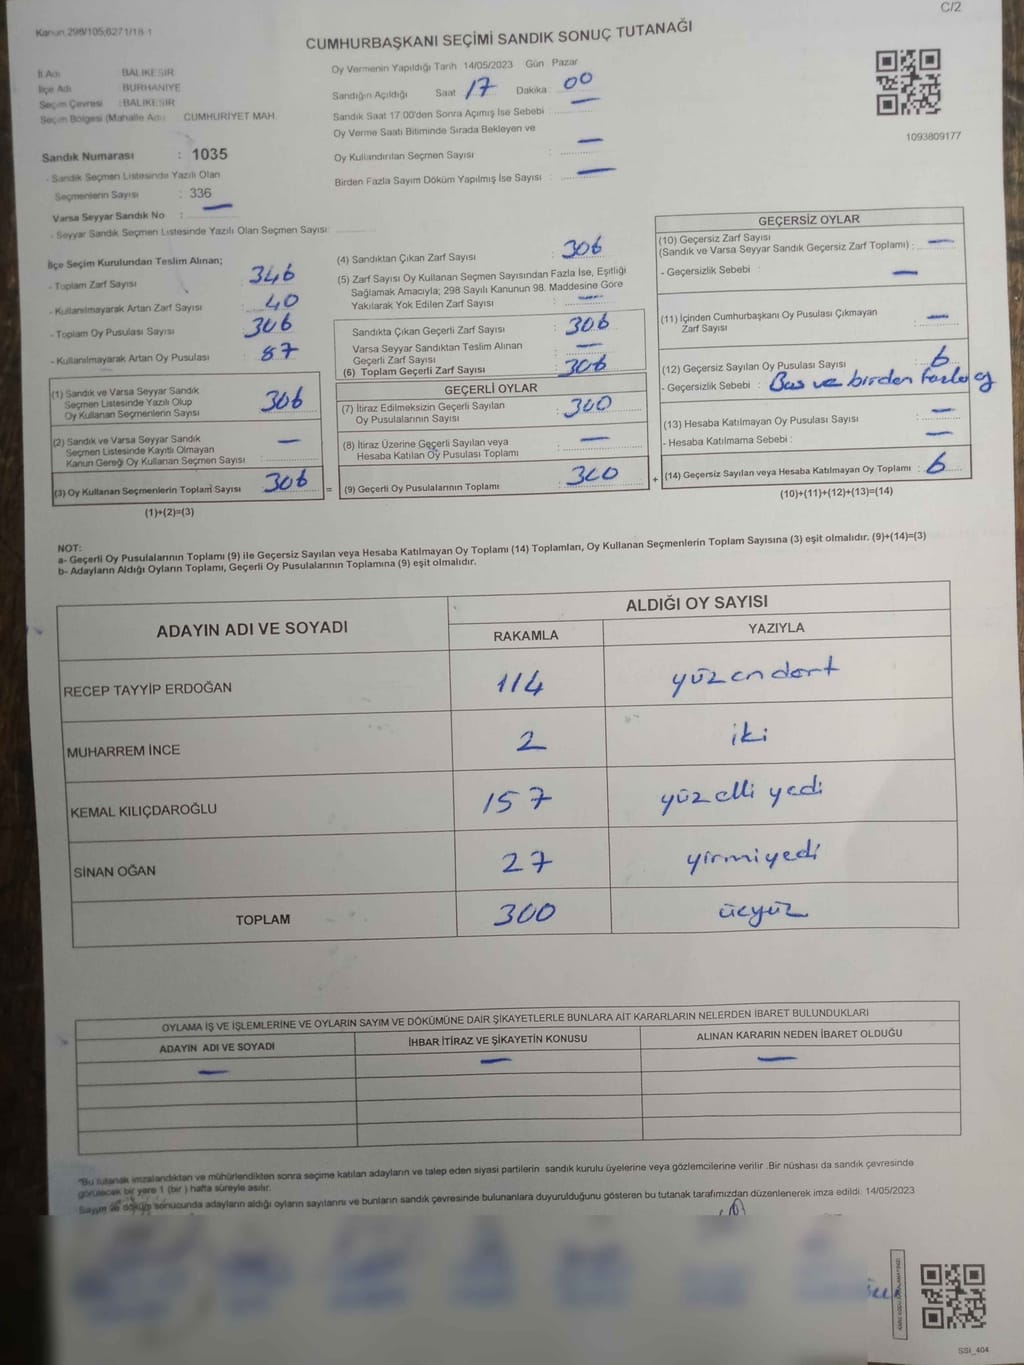 C/2
Kanun 298/105,6271/18-1
CUMHURBAŞKANI SEÇİMİ SANDIK SONUÇ TUTANAĞI
İl Adı BALIKESİR
İlçe Adı BURHANİYE
Seçim Çevresi : BALIKESİR
Seçim Bölgesi (Mahalle Adı) CUMHURİYET MAH.
Oy Vermenin Yapıldığı Tarih 14/05/2023 Gün Pazar
Sandığın Açıldığı Saat 17 Dakika 00
Sandık Saat 17 00'den Sonra Açımış İse Sebebi : —
Oy Verme Saati Bitiminde Sırada Bekleyen ve
Oy Kullandırılan Seçmen Sayısı : —
Birden Fazla Sayım Döküm Yapılmış İse Sayısı : —
1093809177
Sandık Numarası : 1035
- Sandık Seçmen Listesinde Yazılı Olan
Seçmenlerin Sayısı : 336
Varsa Seyyar Sandık No : —
- Seyyar Sandık Seçmen Listesinde Yazılı Olan Seçmen Sayısı:
İlçe Seçim Kurulundan Teslim Alınan;
- Toplam Zarf Sayısı : 346
- Kullanılmayarak Artan Zarf Sayısı : 40
- Toplam Oy Pusulası Sayısı : 306
- Kullanılmayarak Artan Oy Pusulası : 87
(1) Sandık ve Varsa Seyyar Sandık
Seçmen Listesinde Yazılı Olup
Oy Kullanan Seçmenlerin Sayısı 306
(2) Sandık ve Varsa Seyyar Sandık
Seçmen Listesinde Kayıtlı Olmayan
Kanun Gereği Oy Kullanan Seçmen Sayısı : —
(3) Oy Kullanan Seçmenlerin Toplam Sayısı 306
(1)+(2)=(3)
(4) Sandıktan Çıkan Zarf Sayısı : 306
(5) Zarf Sayısı Oy Kullanan Seçmen Sayısından Fazla İse, Eşitliği
Sağlamak Amacıyla; 298 Sayılı Kanunun 98. Maddesine Göre
Yakılarak Yok Edilen Zarf Sayısı : —
Sandıkta Çıkan Geçerli Zarf Sayısı : 306
Varsa Seyyar Sandıktan Teslim Alınan
Geçerli Zarf Sayısı : —
(6) Toplam Geçerli Zarf Sayısı : 306
GEÇERLİ OYLAR
(7) İtiraz Edilmeksizin Geçerli Sayılan
Oy Pusulalarının Sayısı : 300
(8) İtiraz Üzerine Geçerli Sayılan veya
Hesaba Katılan Oy Pusulası Toplamı : —
= (9) Geçerli Oy Pusulalarının Toplamı : 300
GEÇERSİZ OYLAR
(10) Geçersiz Zarf Sayısı
(Sandık ve Varsa Seyyar Sandık Geçersiz Zarf Toplamı) : —
- Geçersizlik Sebebi : —
(11) İçinden Cumhurbaşkanı Oy Pusulası Çıkmayan
Zarf Sayısı : —
(12) Geçersiz Sayılan Oy Pusulası Sayısı : 6
- Geçersizlik Sebebi : Boş ve birden fazla oy
(13) Hesaba Katılmayan Oy Pusulası Sayısı : —
- Hesaba Katılmama Sebebi : —
+ (14) Geçersiz Sayılan veya Hesaba Katılmayan Oy Toplamı : 6
(10)+(11)+(12)+(13)=(14)
NOT:
a- Geçerli Oy Pusulalarının Toplamı (9) ile Geçersiz Sayılan veya Hesaba Katılmayan Oy Toplamı (14) Toplamları, Oy Kullanan Seçmenlerin Toplam Sayısına (3) eşit olmalıdır. (9)+(14)=(3)
b- Adayların Aldığı Oyların Toplamı, Geçerli Oy Pusulalarının Toplamına (9) eşit olmalıdır.
ADAYIN ADI VE SOYADI ALDIĞI OY SAYISI
RAKAMLA YAZIYLA
RECEP TAYYİP ERDOĞAN 114 yüzendört
MUHARREM İNCE 2 iki
KEMAL KILIÇDAROĞLU 157 yüzelli yedi
SİNAN OĞAN 27 yirmiyedi
TOPLAM 300 üçyüz
OYLAMA İŞ VE İŞLEMLERİNE VE OYLARIN SAYIM VE DÖKÜMÜNE DAİR ŞİKAYETLERLE BUNLARA AİT KARARLARIN NELERDEN İBARET BULUNDUKLARI
ADAYIN ADI VE SOYADI İHBAR İTİRAZ VE ŞİKAYETİN KONUSU ALINAN KARARIN NEDEN İBARET OLDUĞU
— — —
*Bu tutanak imzalandıktan ve mühürlendikten sonra seçime katılan adayların ve talep eden siyasi partilerin sandık kurulu üyelerine veya gözlemcilerine verilir .Bir nüshası da sandık çevresinde
görülecek bir yere 1 (bir ) hafta süreyle asılır.
Sayım ve döküm sonucunda adayların aldığı oyların sayılarını ve bunların sandık çevresinde bulunanlara duyurulduğunu gösteren bu tutanak tarafımızdan düzenlenerek imza edildi. 14/05/2023
SSI_404